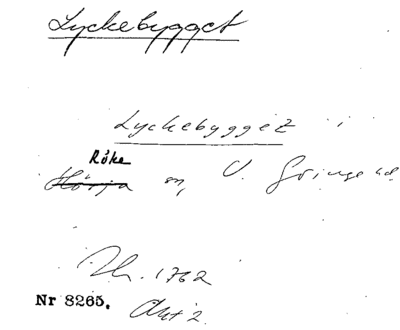 Lyckebygget
Lyckebygget i
Röke
Hörja sn, V. Göinge hd.
1762
Nr 8265. Akt 2.